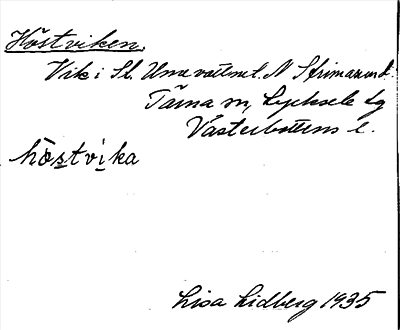 Höstviken.
Vik i St. Umevattnet. N Strimasund.
Tärna sn, Lycksele lg
Västerbottens l.
hö̀stvi̱ka
Lisa Lidberg 1935